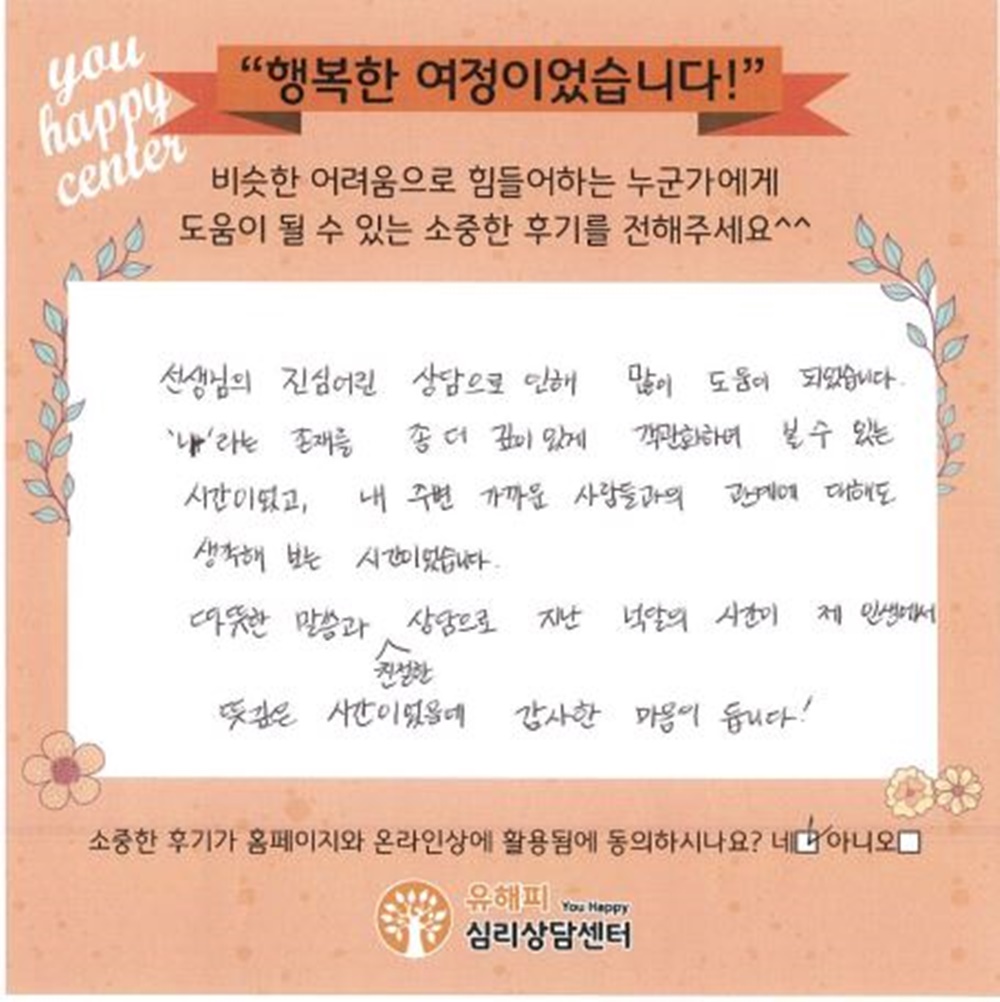 you
happy
center
“행복한 여정이었습니다!”
비슷한 어려움으로 힘들어하는 누군가에게
도움이 될 수 있는 소중한 후기를 전해주세요^^
선생님의 진심어린 상담으로 인해 많이 도움이 되었습니다.
'나'라는 존재를 좀 더 깊이 있게 객관화하며 볼 수 있는
시간이었고, 내 주변 가까운 사람들과의 관계에 대해도
생각해 보는 시간이었습니다.
따뜻한 말씀과 상담으로 지난 넉달의 시간이 제 인생에서
친절한
뜻깊은 시간이었음에 감사한 마음이 듭니다!
소중한 후기가 홈페이지와 온라인상에 활용됨에 동의하시나요? 네 아니오
유해피 You Happy
심리상담센터